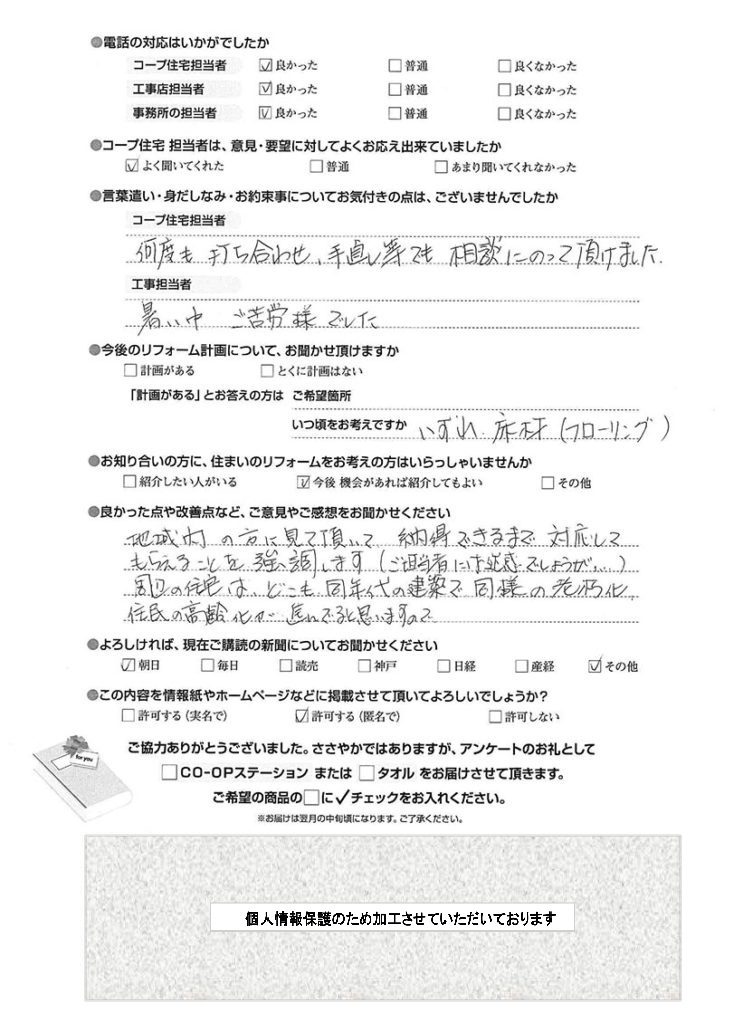 ●電話の対応はいかがでしたか
コープ住宅担当者 ☑良かった □普通 □良くなかった
工事店担当者 ☑良かった □普通 □良くなかった
事務所の担当者 ☑良かった □普通 □良くなかった
●コープ住宅 担当者は、意見・要望に対してよくお応え出来ていましたか
☑よく聞いてくれた □普通 □あまり聞いてくれなかった
●言葉遣い・身だしなみ・お約束事についてお気付きの点は、ございませんでしたか
コープ住宅担当者
何度も 打ち合わせ、手直し等でも 相談にのって頂けました.
工事担当者
暑い中 ご苦労様でした
●今後のリフォーム計画について、お聞かせ頂けますか
□計画がある □とくに計画はない
「計画がある」とお答えの方は ご希望箇所
いつ頃をお考えですか いずれ. 床材(フローリング)
●お知り合いの方に、住まいのリフォームをお考えの方はいらっしゃいませんか
□紹介したい人がいる ☑今後 機会があれば紹介してもよい □その他
●良かった点や改善点など、ご意見やご感想をお聞かせください
地域内の方に見て頂いて 納得できるまで 対応して
もらえることを強調します(ご担当者には迷惑でしょうが....)
周辺の住宅は、どこも同年代の建築で同様の老朽化、
住民の高齢化が進んでると思いますので
●よろしければ、現在ご購読の新聞についてお聞かせください
☑朝日 □毎日 □読売 □神戸 □日経 □産経 ☑その他
●この内容を情報紙やホームページなどに掲載させて頂いてよろしいでしょうか？
□許可する（実名で） ☑許可する（匿名で） □許可しない
for you
ご協力ありがとうございました。ささやかではありますが、アンケートのお礼として
□CO-OPステーション または □タオル をお届けさせて頂きます。
ご希望の商品の□に✓チェックをお入れください。
※お届けは翌月の中旬頃になります。ご了承ください。
個人情報保護のため加工させていただいております